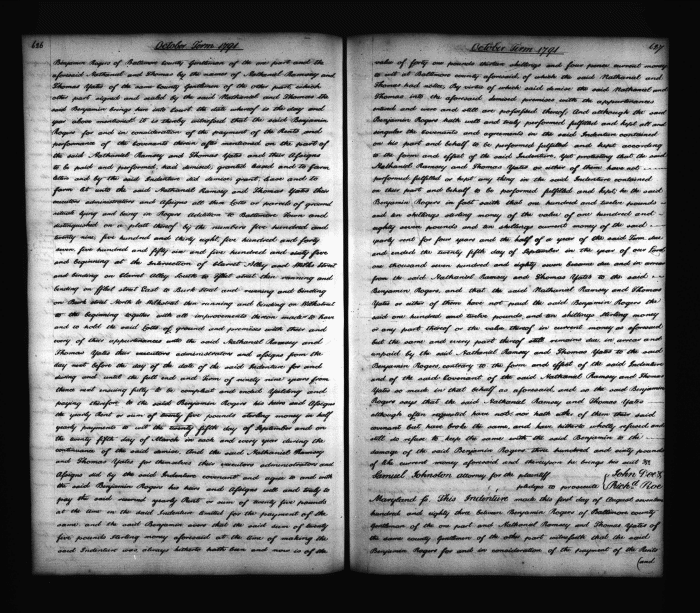 646
October Term 1791
Benjamin Rogers of Baltimore County Gentleman of the one part and the
aforesaid Nathaniel and Thomas by the names of Nathaniel Ramsey and
Thomas Yates of the same County Gentlemen of the other part which
other part signed and sealed by the said Nathaniel and Thomas the
said Benjamin brings here into Court the date whereof is the day and
year above mentioned it is thereby witnessed that the said Benjamin
Rogers for and in consideration of the payment of the Rents and
performance of the Covenants therein after mentioned on the part of
the said Nathaniel Ramsey and Thomas Yates and their Assigns
to be paid and performed, had demised, granted leased and to farm
letten and by the said Indenture did demise grant, lease and to
farm let unto the said Nathaniel Ramsey and Thomas Yates their
executors administrators and Assigns all those Lotts or parcels of ground
situate lying and being in Rogers Addition to Baltimore Town and
distinguished on a platt thereof by the numbers five hundred and
twenty nine, five hundred and thirty eight, five hundred and forty
seven five hundred and fifty six and five hundred and sixty five
and beginning at the intersection of Street
and binding on Alley South to street then running and
binding on street East to Bank street and running and binding
on Bank street North to then running and binding on
to the beginning together with all improvements thereon made to have
and to hold the said Lotts of ground and premises with their and
every of their appurtenances unto the said Nathaniel Ramsey and
Thomas Yates their executors administrators and assigns from the
day next before the day of the date of the said Indenture for and
during and until the full end and Term of ninety nine years from
thence next ensuing fully to be compleat and ended Yielding and
paying therefor to the said Benjamin Rogers his heirs and Assigns
the yearly Rent or sum of twenty five pounds sterling money in half
yearly payments to wit the twenty fifth day of September and on
the twenty fifth day of March in each and every year during the
continuance of the said demise. And the said Nathaniel Ramsey
and Thomas Yates for themselves their executors administrators and
Assigns did by the said Indenture covenant and agree to and with
the said Benjamin Rogers his heirs and Assigns well and truly to
pay the said annual yearly Rent or sum of twenty five pounds
at the time in the said Indenture limited for the payment of the
same and the said Benjamin avers that the said sum of twenty
five pounds sterling money aforesaid at the time of making the
said Indenture was always hitherto hath been and now is of the
647
October Term 1791
value of forty one pounds thirteen shillings and four pence current money
to wit at Baltimore County aforesaid of which the said Nathaniel and
Thomas had notice, By virtue of which said demise the said Nathaniel and
Thomas into the aforesaid demised premises with the appurtenances
entered and were and still are possessed thereof, And although the said
Benjamin Rogers hath well and truly performed fulfilled and kept all and
singular the Covenants and agreements in the said Indenture contained
on his part and behalf to be performed fulfilled and kept according
to the form and effect of the said Indenture. Yet protesting that the said
Nathaniel Ramsey and Thomas Yates or either of them have not
performed fulfilled or kept any thing in the said Indenture contained
on their part and behalf to be performed fulfilled and kept, the said
Benjamin Rogers in fact saith that one hundred and twelve pounds
and ten shillings sterling money of the value of one hundred and
eighty seven pounds and ten shillings current money of the said
yearly rent for four years and the half of a year of the said Term due
and ended the twenty fifth day of September in the year of our Lord
one thousand seven hundred and eighty seven became due and in arrear
from the said Nathaniel Ramsey and Thomas Yates to the said
Benjamin Rogers, and that the said Nathaniel Ramsey and Thomas
Yates or either of them have not paid the said Benjamin Rogers the
said one hundred and twelve pounds, and ten shillings sterling money
or any part thereof or the value thereof in current money as aforesaid
but the same and every part thereof still remains due in arrear and
unpaid by the said Nathaniel Ramsey and Thomas Yates to the said
Benjamin Rogers, contrary to the form and effect of the said Indenture
and of the said Covenant of the said Nathaniel Ramsey and Thomas
Yates so made in that behalf as aforesaid, and so the said Benjamin
Rogers says that the said Nathaniel Ramsey and Thomas Yates
although often requested have not nor hath either of them their said
covenant but have broke the same, and have hitherto wholly refused and
still do refuse to keep the same with the said Benjamin to the
damage of the said Benjamin Rogers three hundred and sixty pounds
of like current money aforesaid and therefore he brings his suit &c
Samuel Johnston Attorney for the plaintiff
pledges to prosecute
John Doe &
Richd. Roe
Maryland sc. This Indenture made this first day of August seventeen
hundred and eighty three between Benjamin Rogers of Baltimore County
Gentleman of the one part and Nathaniel Ramsey and Thomas Yates of
the same County Gentlemen of the other part witnesseth that the said
Benjamin Rogers for and in consideration of the payment of the Rents
(and